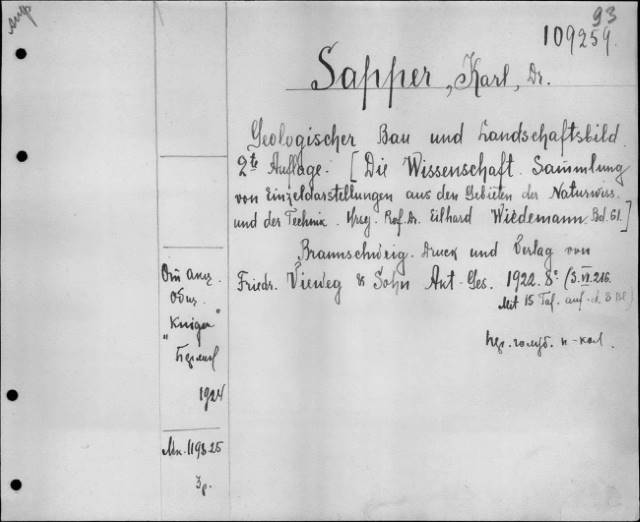 93
109259.
Sapper, Karl, Dr.
Geologischer Bau und Landschaftsbild.
2te Auflage. [Die Wissenschaft. Sammlung
von Einzeldarstellungen aus den Gebieten der Naturwiss.
und der Technik. Hrsg. Prof. Dr. Eilhard Wiedemann. Bd. 61.]
Braunschweig. Druck und Verlag von
Friedr. Vieweg & Sohn Akt-Ges. 1922. 8° (3. VI. 216.
Mit 15 Taf. auf 8 Bl.)
От акц.
Общ.
"Книга"
Берлин
1924
Мк. 1193.25
3р.